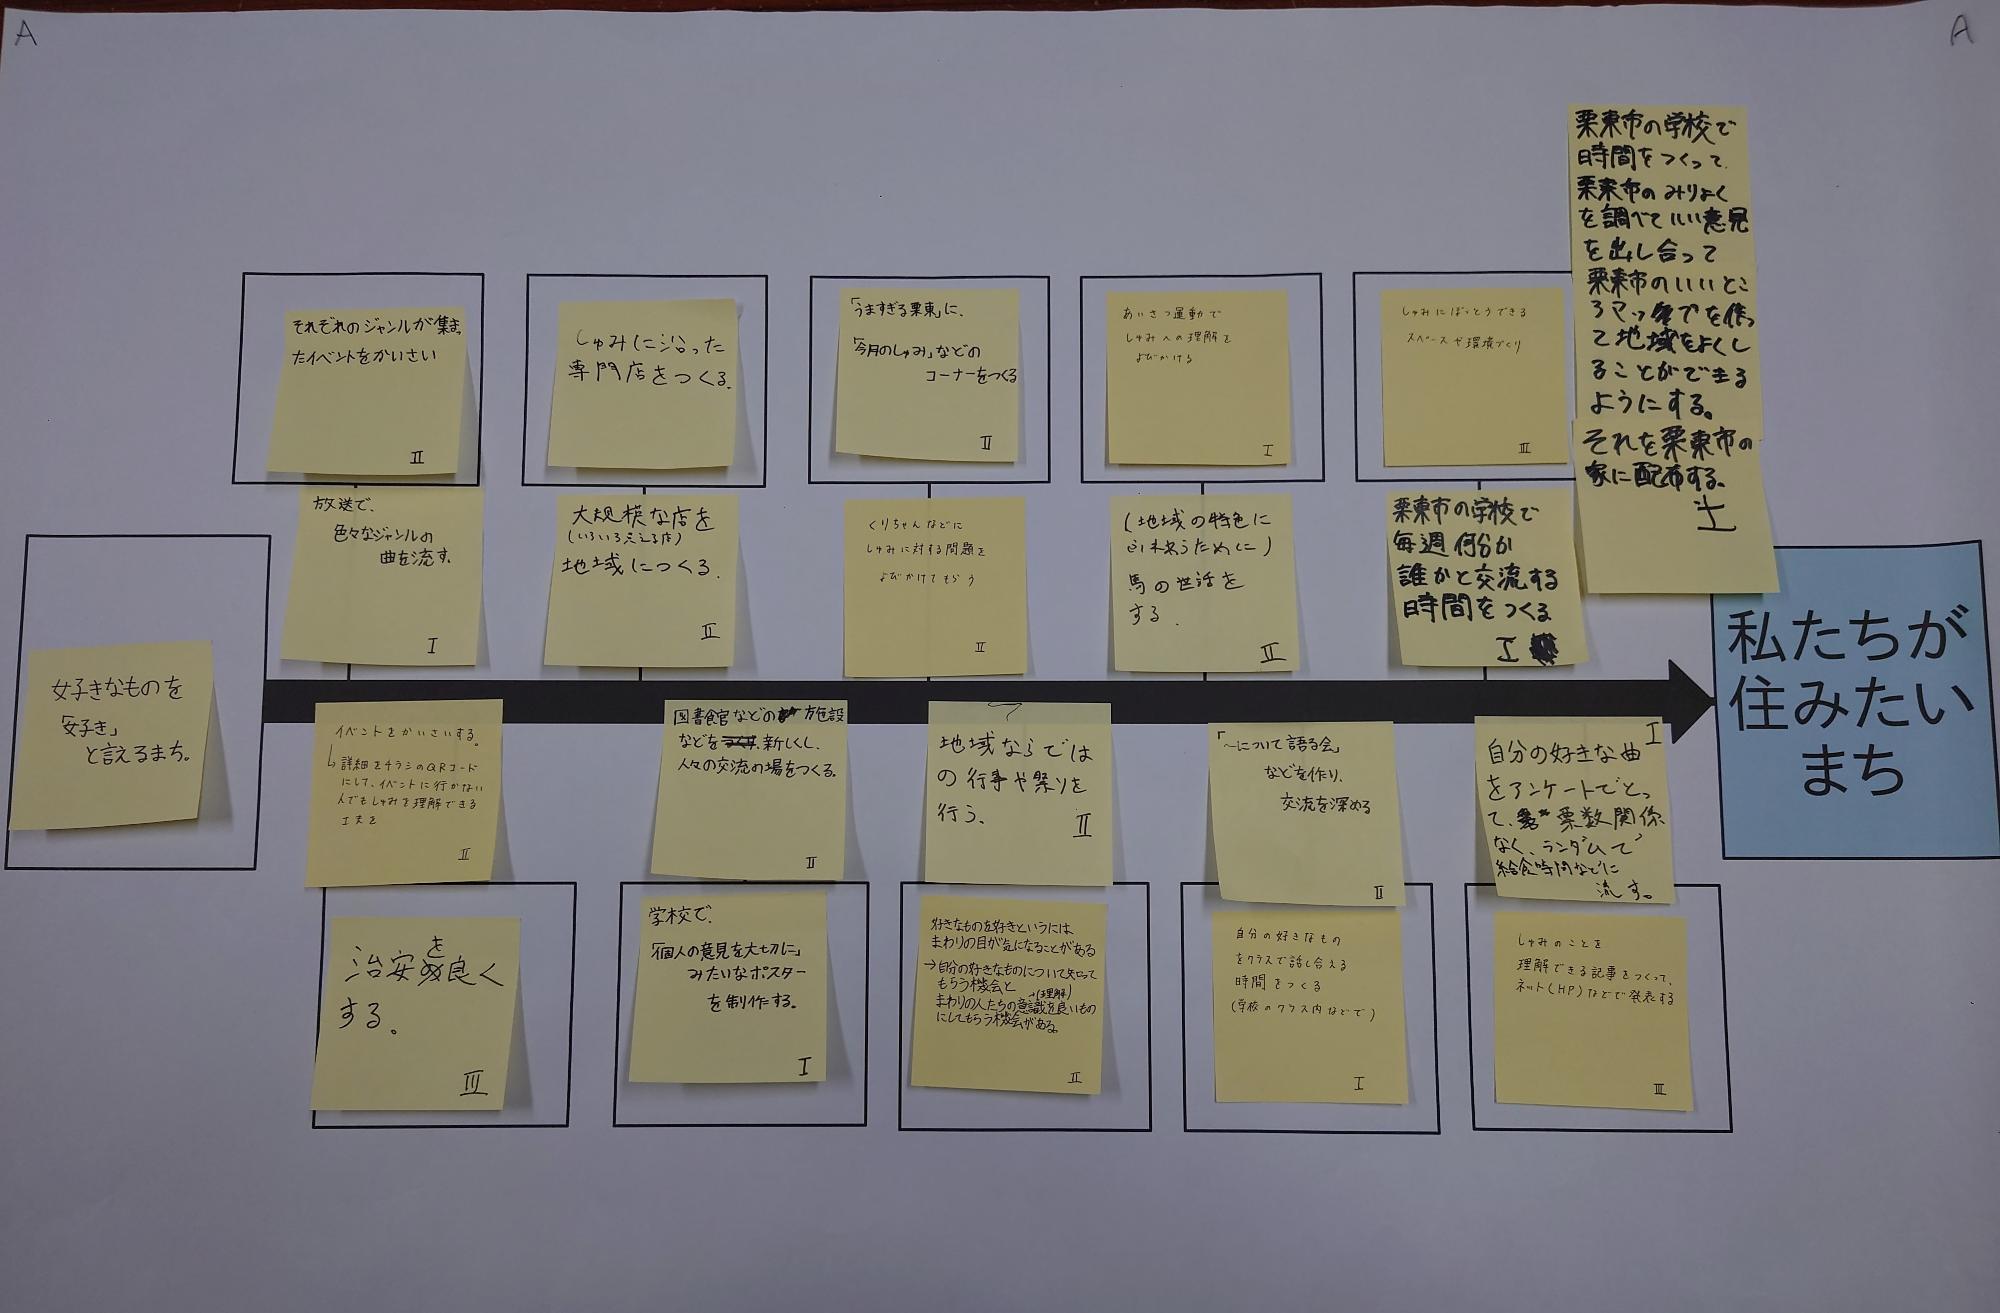 A
A
栗東市の学校で
時間をつくって
栗東市のみりょく
を調べていい意見
を出し合って
栗東市のいいとこ
ろマップを作っ
て地域をよくし
ることができる
ようにする。
それを栗東市の
家に配布する。
それぞれのジャンルが集まっ
たイベントをかいさい
Ⅱ
しゅみに沿った
専門店をつくる。
「うますぎる栗東」に、
「今月のしゅみ」などの
コーナーをつくる
Ⅱ
あいさつ運動で
しゅみへの理解を
よびかける
Ⅰ
しゅみにぼっとうできる
スペースや環境づくり
Ⅲ
放送で、
色々なジャンルの
曲を流す。
Ⅰ
大規模な店を
(いろいろ買える店)
地域につくる。
Ⅱ
くりちゃんなどに
しゅみに対する問題を
よびかけてもらう
Ⅱ
(地域の特色に
ために)
馬の世話を
する.
Ⅱ
栗東市の学校で
毎週何分か
誰かと交流する
時間をつくる
Ⅰ
好きなものを
「好き」
と言えるまち。
私たちが
住みたい
まち
イベントをかいさいする。
↳詳細をチラシのQRコード
にして、イベントに行かない
人でもしゅみを理解できる
工夫を
Ⅱ
図書館などの施設
などを新しくし、
人々の交流の場をつくる。
Ⅱ
地域ならでは
の行事や祭りを
行う。
Ⅱ
「～について語る会」
などを作り、
交流を深める
Ⅱ
Ⅰ
自分の好きな曲
をアンケートでとっ
て、票数関係
なく、ランダムで
給食時間などに
流す。
治安を良く
する。
Ⅲ
学校で、
「個人の意見を大切に」
みたいなポスター
を制作する。
Ⅰ
好きなものを好きというには
まわりの目が気になることがある
→自分の好きなものについて知って
もらう機会と
+(理解)
まわりの人たちの意識を良いもの
にしてもらう機会がある。
Ⅱ
自分の好きなもの
をクラスで話し合える
時間をつくる
(学校のクラス内などで)
Ⅰ
しゅみのことを
理解できる記事をつくって、
ネット(HP)などで発表する
Ⅲ